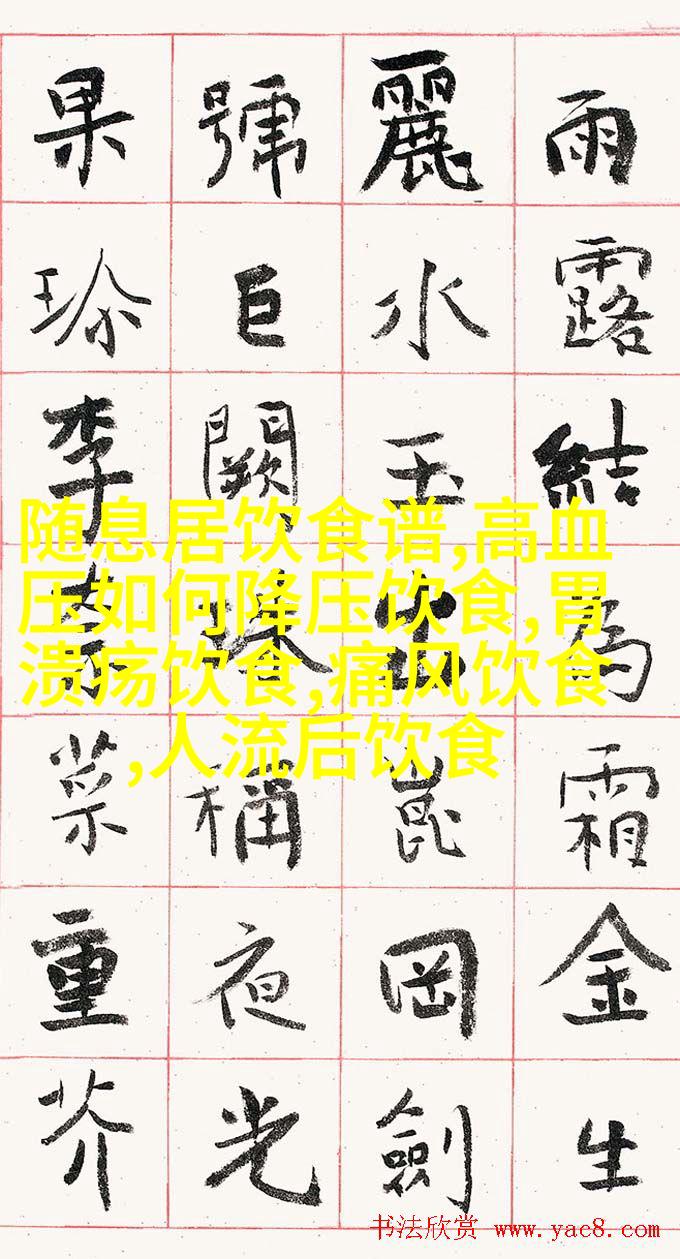 雨露結為霜金生
麗水玉出崑岡劍
號巨闕珠稱夜光
果珎李柰菜重芥
随息居饮食谱,高血
压如何降压饮食,胃
溃疡饮食,痛风饮食
,人流后饮食
书法欣赏 www.yac8.com